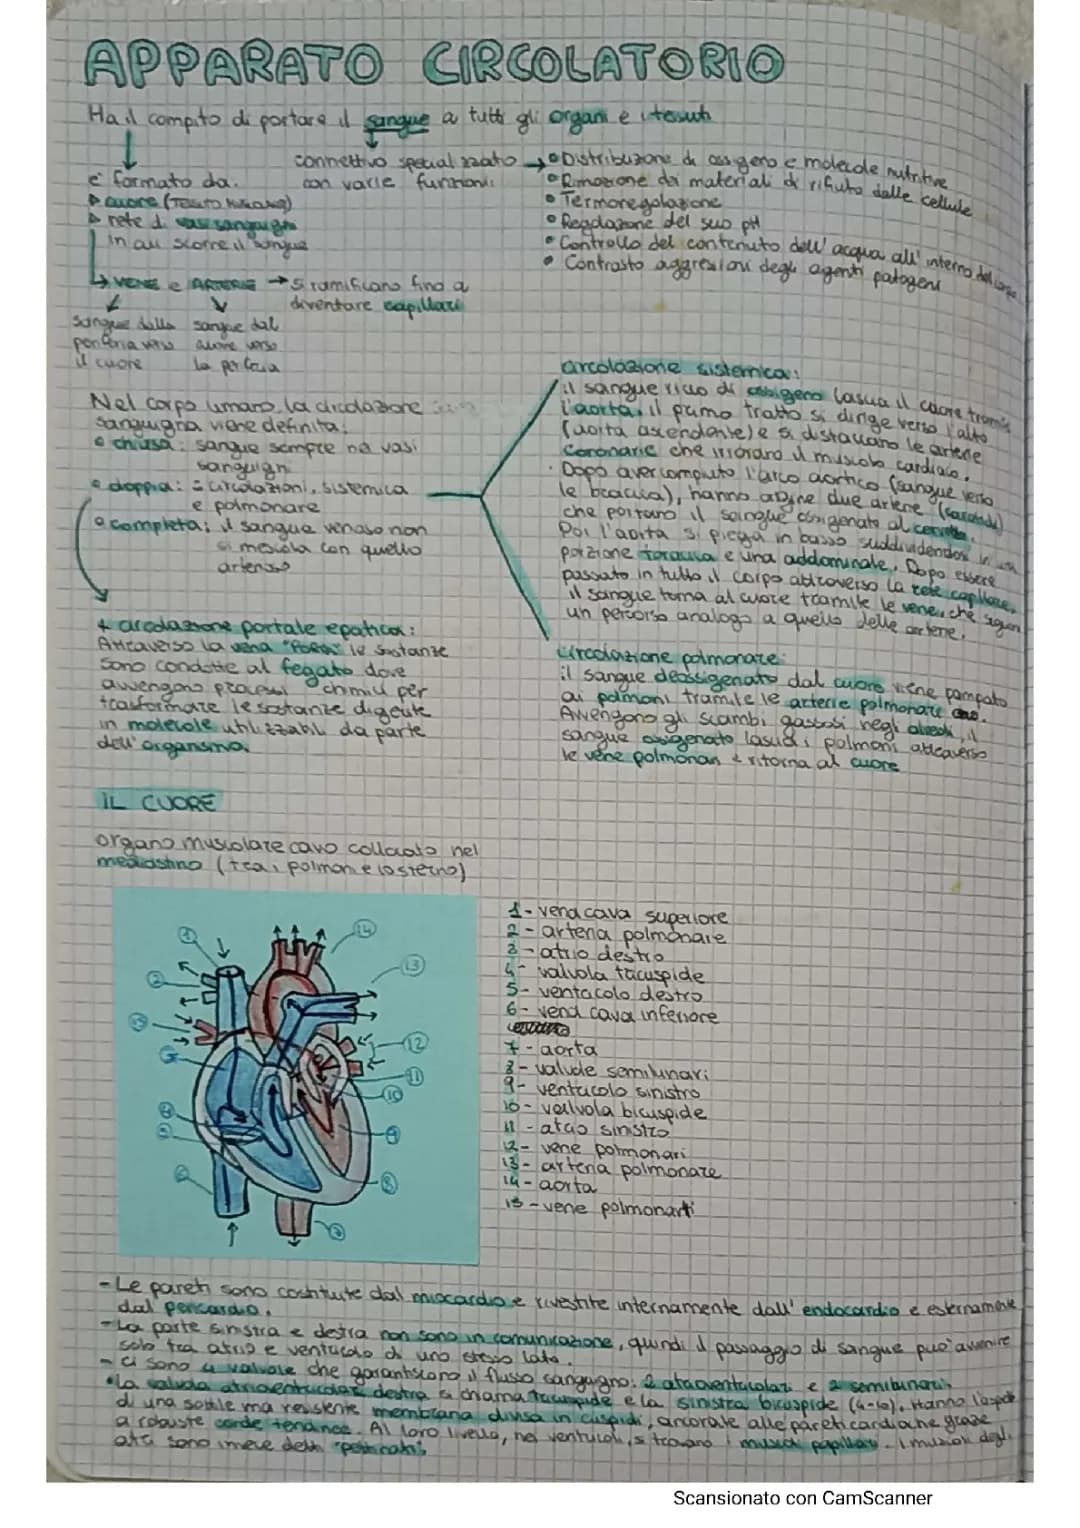 APPARATO CIRCOLATORIO
Ha il compito di portare il sangue a tutti gli organi e tessuti
è formato da:
▷ cuore (TESSUTO MUSCOLARE)
▷ rete di vasi sanguigni
in cui scorre il sangue
VENE e ARTERIE → si ramificano fino a
diventare capillari
sangue dalla
periferia verso
il cuore
sangue dal
cuore verso
la periferia
connettivo specializzato
con varie funzioni:
• Distribuzione di ossigeno e molecole nutritive
• Rimozione dei materiali di rifiuto dalle cellule
• Termoregolazione
• Regolazione del suo pH
• Controllo del contenuto dell'acqua all'interno del corpo
• Contrasto aggressioni degli agenti patogeni
Nel corpo umano la circolazione
sanguigna viene definita:
• chiusa: sangue sempre nei vasi
sanguigni
• doppia: 2 circolazioni, sistemica
e polmonare
• completa: il sangue venoso non
si mescola con quello
arterioso
+ circolazione portale epatica:
Attraverso la vena "PORTA" le sostanze
sono condotte al fegato dove
avvengono processi chimici per
trasformare le sostanze digerite
in molecole utilizzabili da parte
dell'organismo.
circolazione sistemica:
il sangue ricco di ossigeno lascia il cuore tramite
l'aorta. Il primo tratto si dirige verso l'alto
(aorta ascendente) e si distaccano le arterie
coronarie che irrorano il muscolo cardiaco.
Dopo aver compiuto l'arco aortico (sangue verso
le braccia), hanno origine due arterie (carotidi)
che portano il sangue ossigenato al cervello.
Poi l'aorta si piega in basso suddividendosi in una
porzione toracica e una addominale. Dopo essere
passato in tutto il corpo attraverso la rete capillare,
il sangue torna al cuore tramite le vene, che seguono
un percorso analogo a quello delle arterie.
circolazione polmonare:
il sangue deossigenato dal cuore viene pompato
ai polmoni tramite le arterie polmonari
Avvengono gli scambi gassosi negli alveoli, il
sangue ossigenato lascia i polmoni attraverso
le vene polmonari e ritorna al cuore
IL CUORE
organo muscolare cavo collocato nel
mediastino (tra i polmoni e lo sterno)
1
2
15
3
4
5
6
14
13
12
11
10
9
8
7
1- vena cava superiore
2- arteria polmonare
3- atrio destro
4- valvola tricuspide
5- ventricolo destro
6- vena cava inferiore
7- aorta
8- valvole semilunari
9- ventricolo sinistro
10- valvola bicuspide
11- atrio sinistro
12- vene polmonari
13- arteria polmonare
14- aorta
15- vene polmonari
- Le pareti sono costituite dal miocardio e rivestite internamente dall'endocardio e esternamente
dal pericardio.
- La parte sinistra e destra non sono in comunicazione, quindi il passaggio di sangue può avvenire
solo tra atrio e ventricolo di uno stesso lato.
- Ci sono 4 valvole che garantiscono il flusso sanguigno: 2 atrioventricolari e 2 semilunari.
• La valvola atrioventricolare destra si chiama tricuspide e la sinistra bicuspide (4-10). Hanno l'aspetto
di una sottile ma resistente membrana divisa in cuspidi, ancorate alle pareti cardiache grazie
a robuste corde tendinee. Al loro livello, nei ventricoli, si trovano i muscoli papillari. I muscoli degli
atri sono invece detti "pettinati".
Scansionato con CamScanner